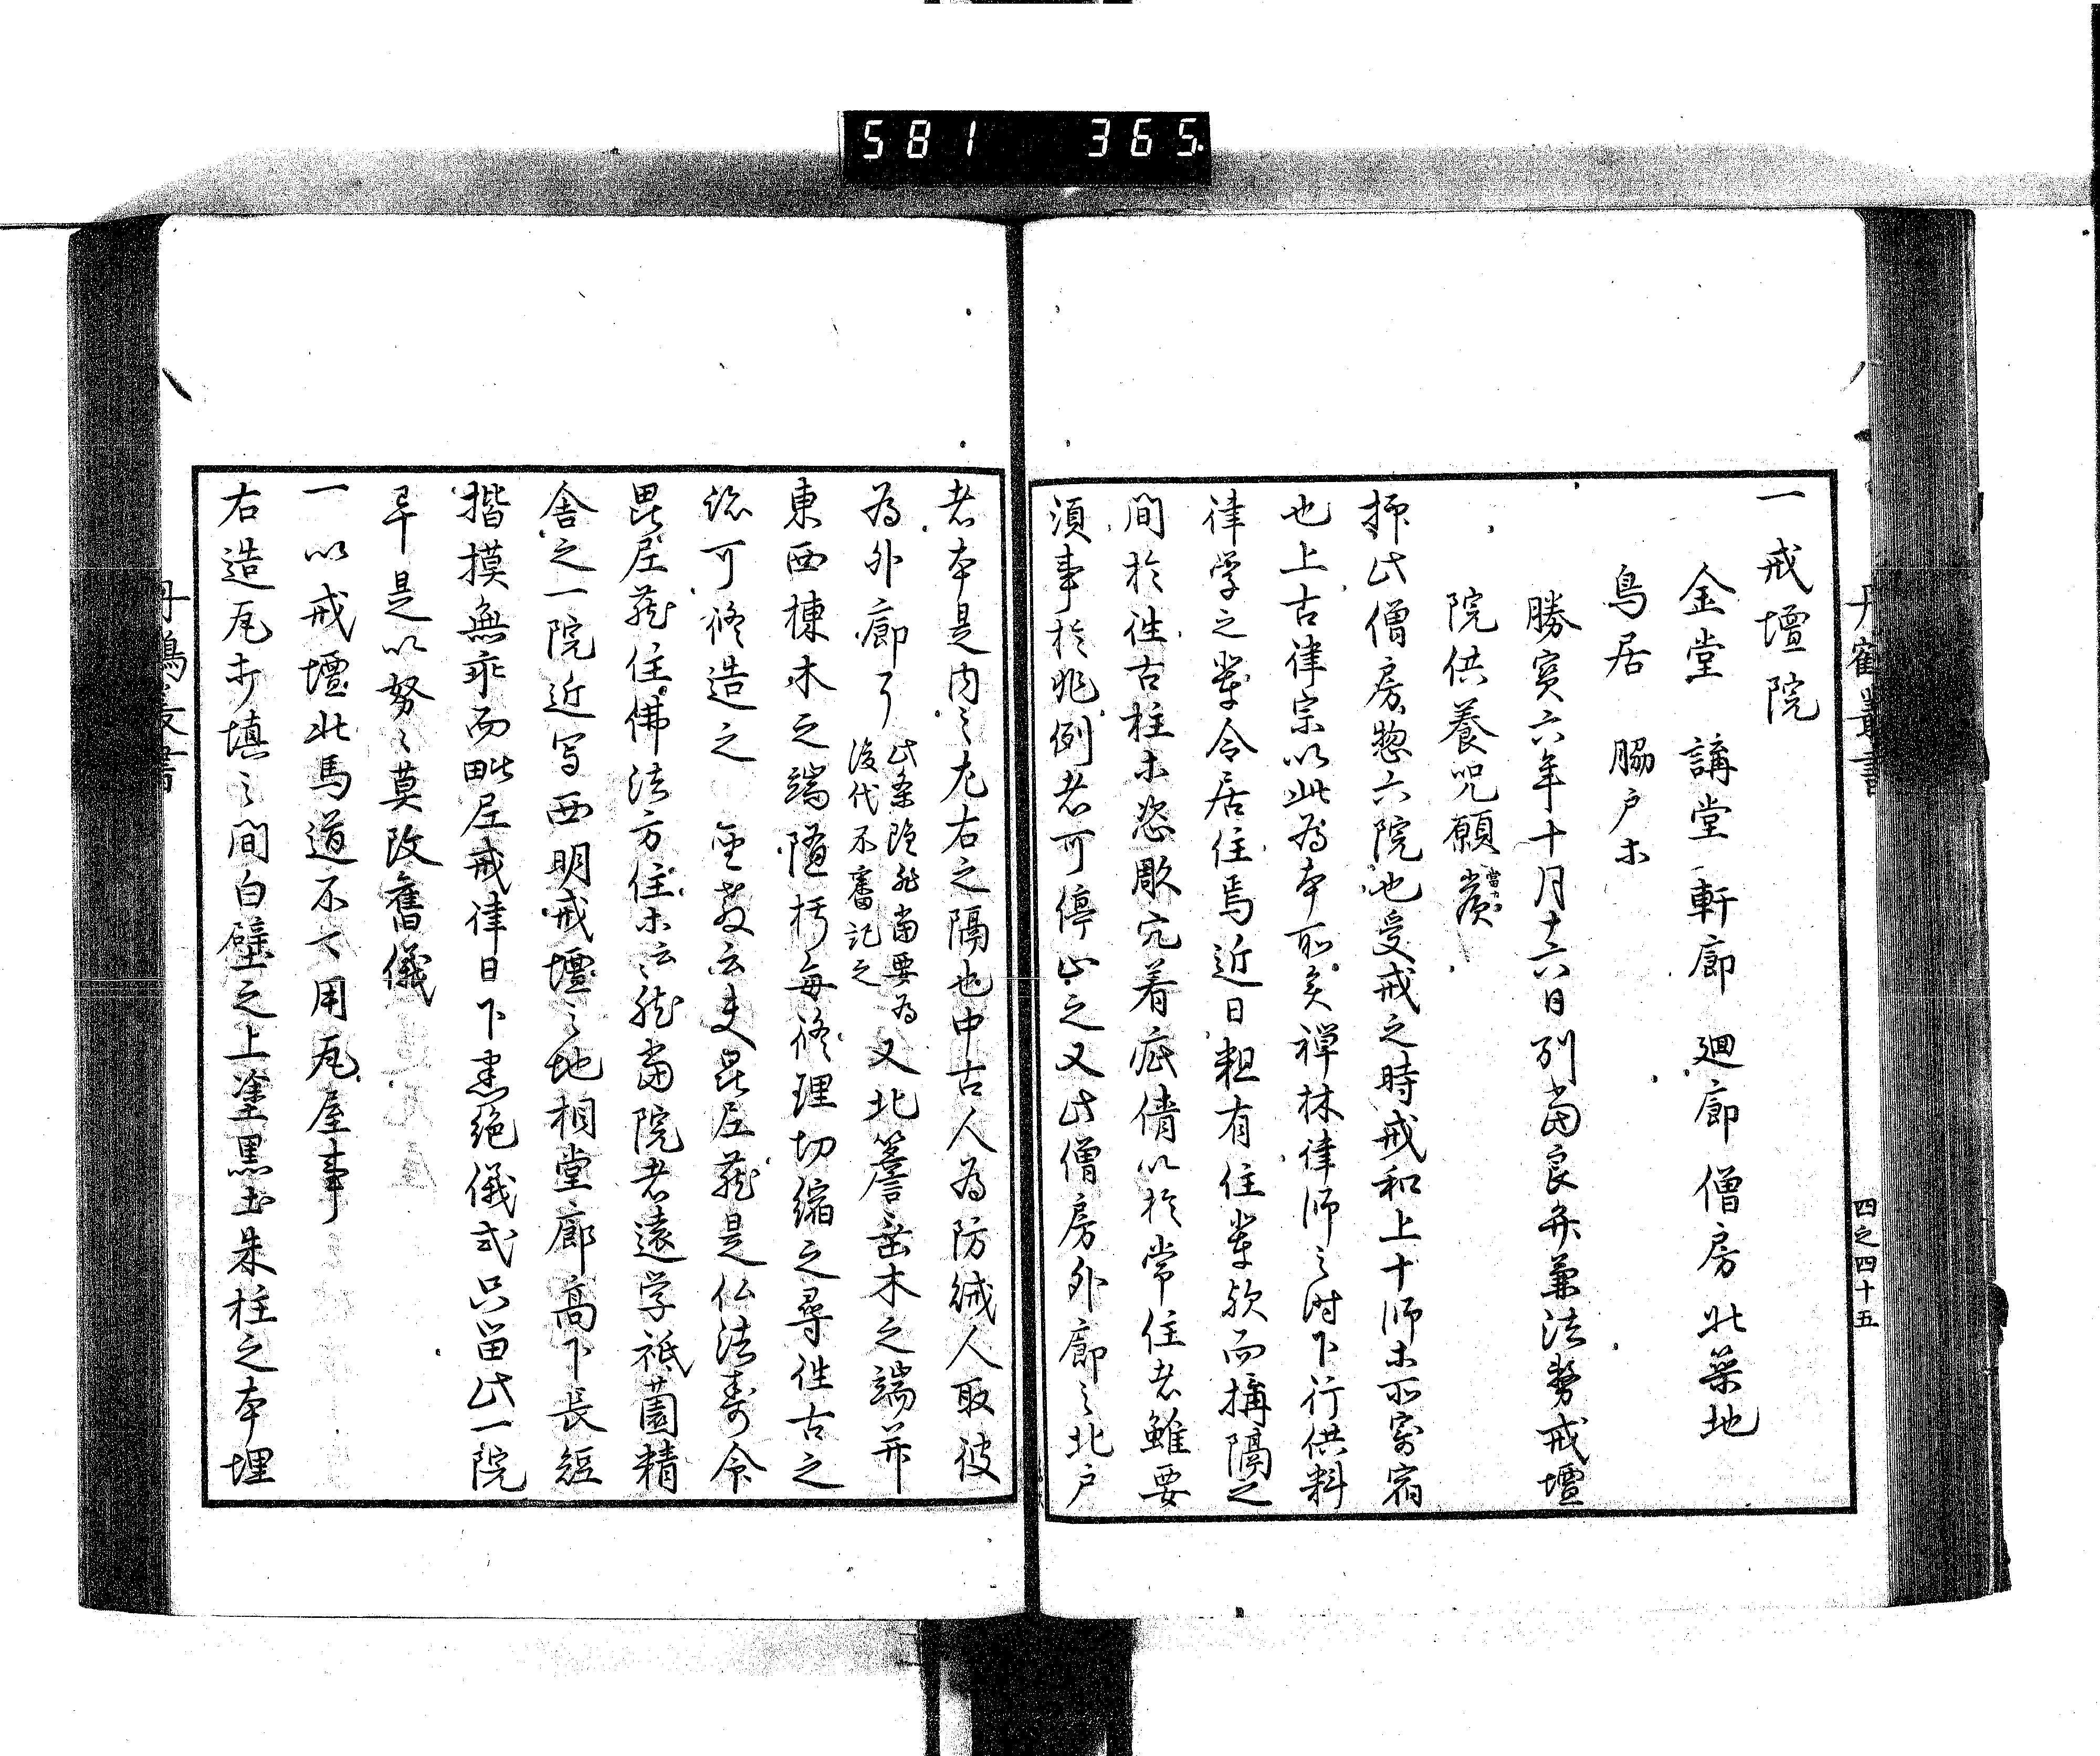 581 365
丹鶴叢書
四之四十五
一戒壇院
金堂 講堂 軒廊 廻廊 僧房 北築地
鳥居 脇戸木
勝寳六年十月十六日別當良弁兼法務戒壇
院供養咒願
抑此僧房惣六院也受戒之時戒和上十師木所寄宿
也上古律宗以此為本所矣禅林律師之時下行供料
律学之輩令居住焉近日粗有住輩欤而構隔之
間於往古柱木恣彫穴着疵倩以於常住者雖要
須事於非例者可停止之又此僧房外廊之北戸
者本是内之左右之隔也中古人為防絨人取彼
為外廊了此条隨能當要為
後代不審記之又北簷垂木之端并
東西棟木之端随朽毎修理切縮之尋往古之
流可修造之 聖教云夫毘尼蔵是仏法寿命
毘尼蔵住佛法方住木云々就當院者遠学祇薗精
舎之一院近写西明戒壇之地相堂廊高下長短
揩摸無乖而毗尼戒律日下悉絶儀式只留此一院
早是以努々莫改舊儀
一以戒壇北馬道不可用瓦屋事
右造瓦木填之間白壁之上塗黒土朱柱之本埋